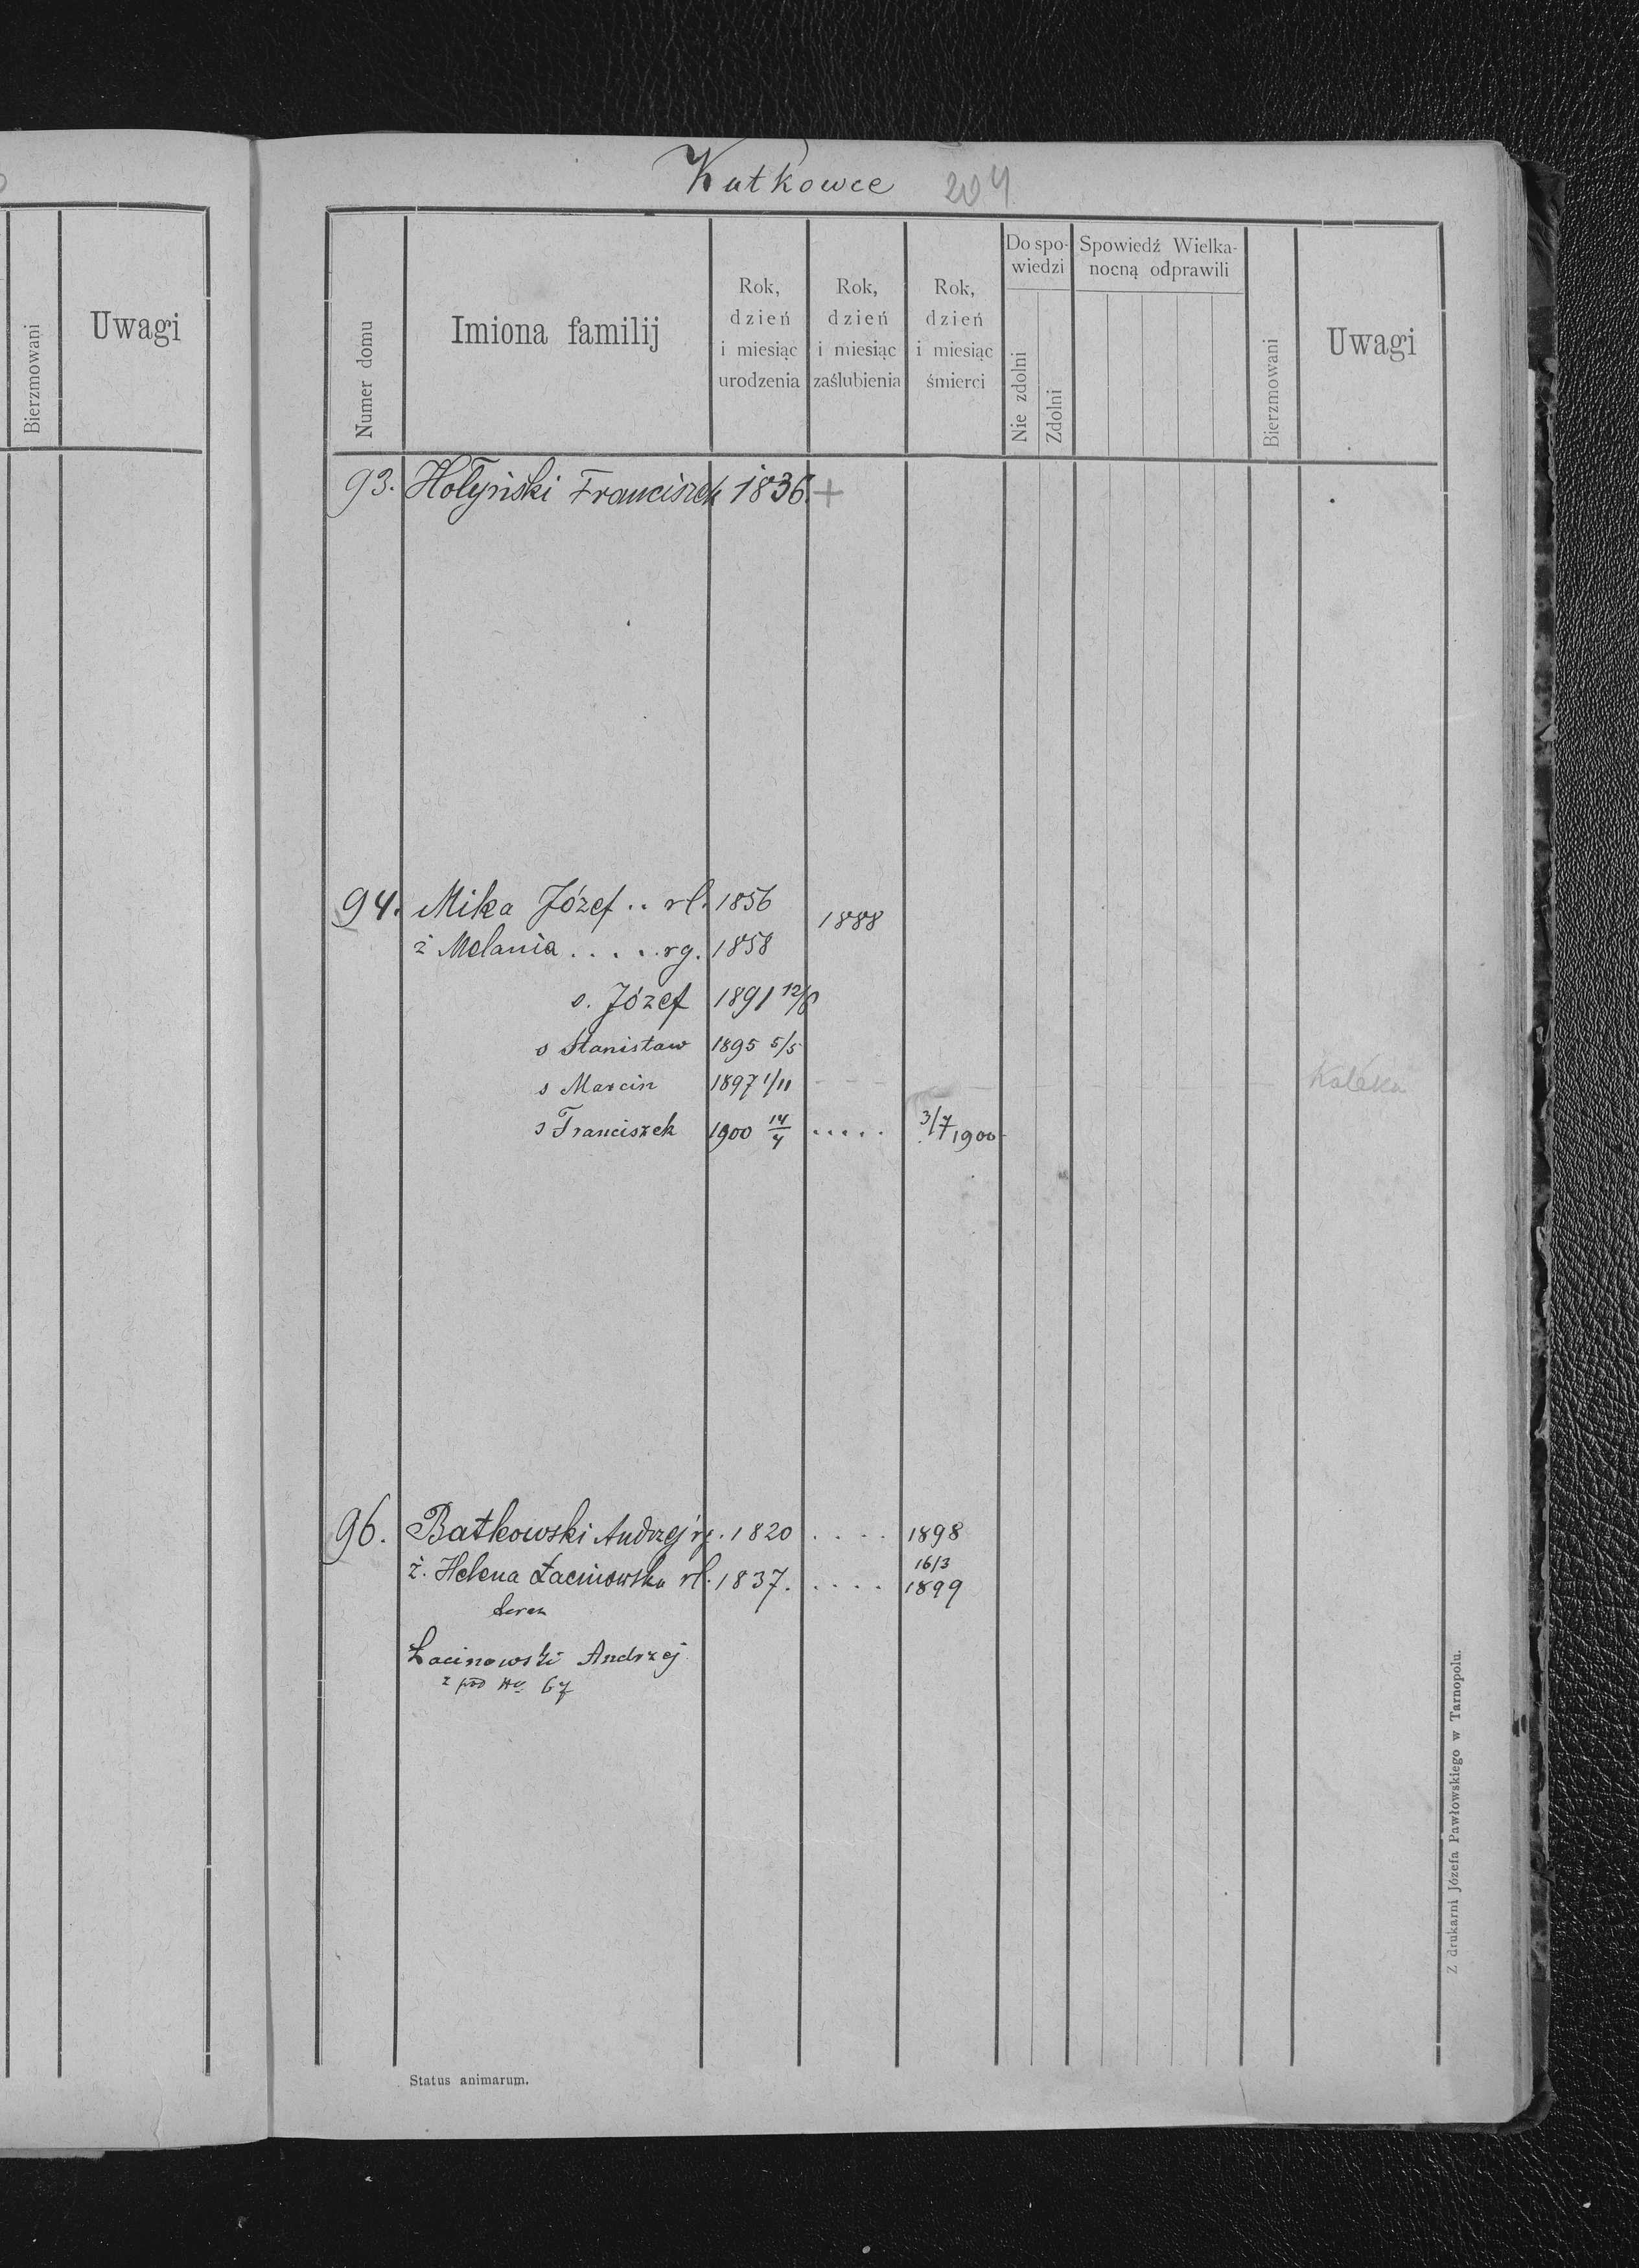 Bierzmowani
Uwagi
Kutkowce 204
Numer domu
Imiona familij
Rok, dzień i miesiąc urodzenia
Rok, dzień i miesiąc zaślubienia
Rok, dzień i miesiąc śmierci
Do spowiedzi
Nie zdolni
Zdolni
Spowiedź Wielkanocną odprawili
Bierzmowani
Uwagi
93. Hołyński Franciszek 1836. +
94. Mika Józef .. rl. 1856 1888
ż Melania ..... rg. 1858
s. Józef 1891 12/8
s Stanisław 1895 5/5
s Marcin 1897 1/11 Kaleka
s Franciszek 1900 14/4 ..... 3/7 1900
96. Batkowski Andrzej rg. 1820 .... 1898
ż. Helena Łacinowska rl. 1837. .... 16/3 1899
Łacinowski Andrzej
z pod No 67
Status animarum.
Z drukarni Józefa Pawłowskiego w Tarnopolu.